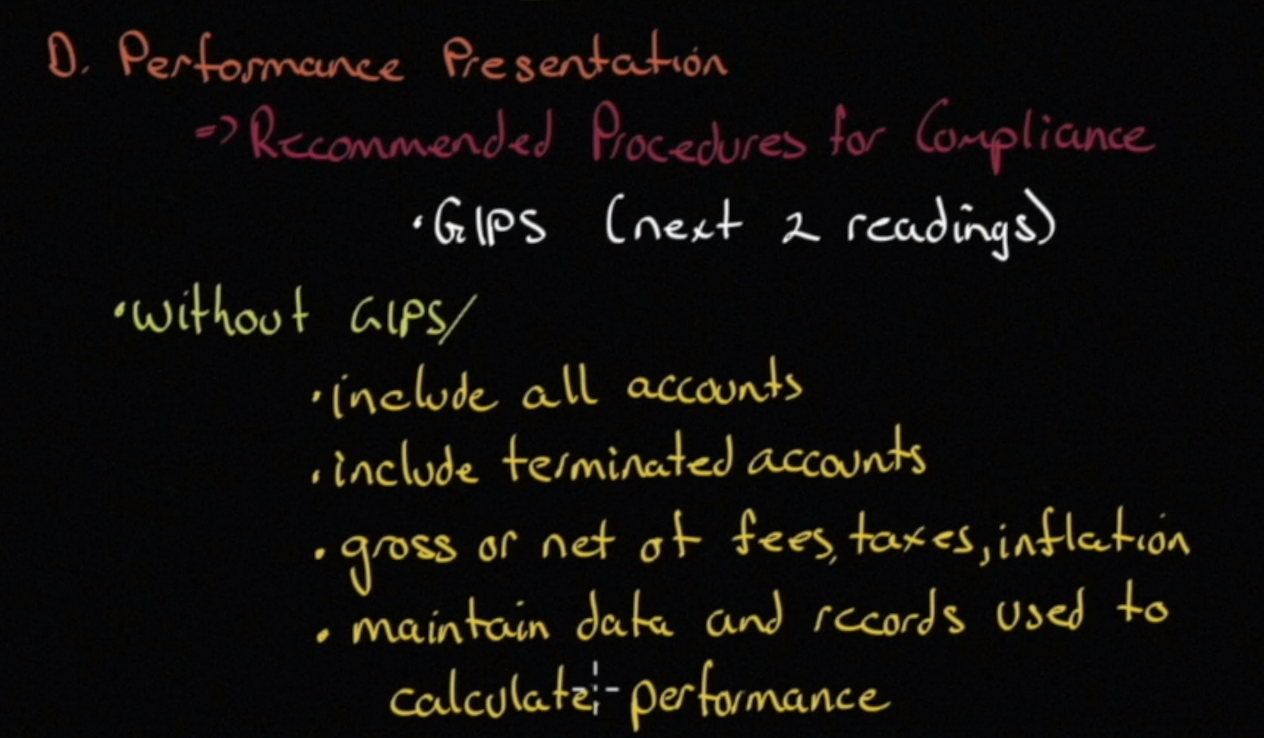 D. Performance Presentation
=> Recommended Procedures for Compliance
• GIPS (next 2 readings)
• without GIPS/
• include all accounts
• include terminated accounts
• gross or net of fees, taxes, inflation
• maintain data and records used to
calculate performance